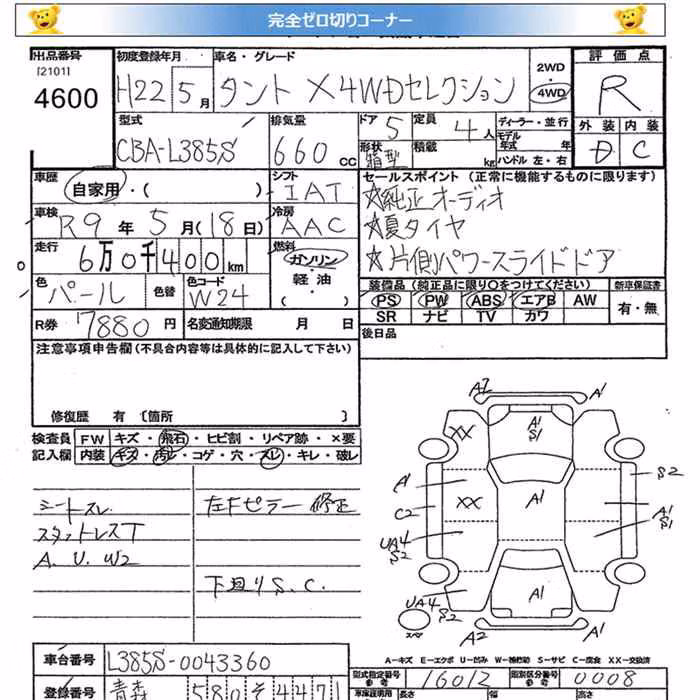 完全ゼロ切りコーナー
出品番号 初度登録年月 車名・グレード 評価点
[2101]
4600 H22 5月 タント X4WDセレクション 2WD・4WD R
型式 排気量 ドア 5 定員 4人 ディーラー・並行 外装 内装
CBA-L385S 660cc 形状 箱型 積載 kg モデル年式 年 ハンドル 左・右 D C
車歴 自家用・( ) シフト IAT セールスポイント (正常に機能するものに限ります)
車検 R9年5月(18日) 冷房 AAC ☆純正オーディオ
☆夏タイヤ
走行 6万0千400km 燃料 ガソリン・軽油 ☆片側パワースライドドア
色 パール 色替 色コード W24 装備品 (純正品に限り○をつけてください) 新車保証書
PS PW ABS エアB AW 有・無
SR ナビ TV カワ
R券 7880円 名変通知期限 月 日 後日品
注意事項申告欄(不具合内容等は具体的に記入して下さい)
修復歴 有 〔箇所 〕
検査員 FW キズ・飛石・ヒビ割・リペア跡・×要
記入欄 内装 キズ・汚レ・コゲ・穴・スレ・キレ・破レ
シートスレ 左Fピラー修正
スタットレスT
A.U.W2
下回りS.C.
A2 A1
XX A1 S1
A1 XX A1 S2
C2 A1 S1
UA4 S2
UA4 S2 A1
スペア A2 A1
A-キズ E-エクボ U-凹み W-補修跡 S-サビ C-腐食 XX-交換済
車台番号 L385S-0043360 型式指定番号 参考 16012 類別区分番号 参考 0008
登録番号 青森 580 そ 4471 車庫証明用 長さ 幅 高さ